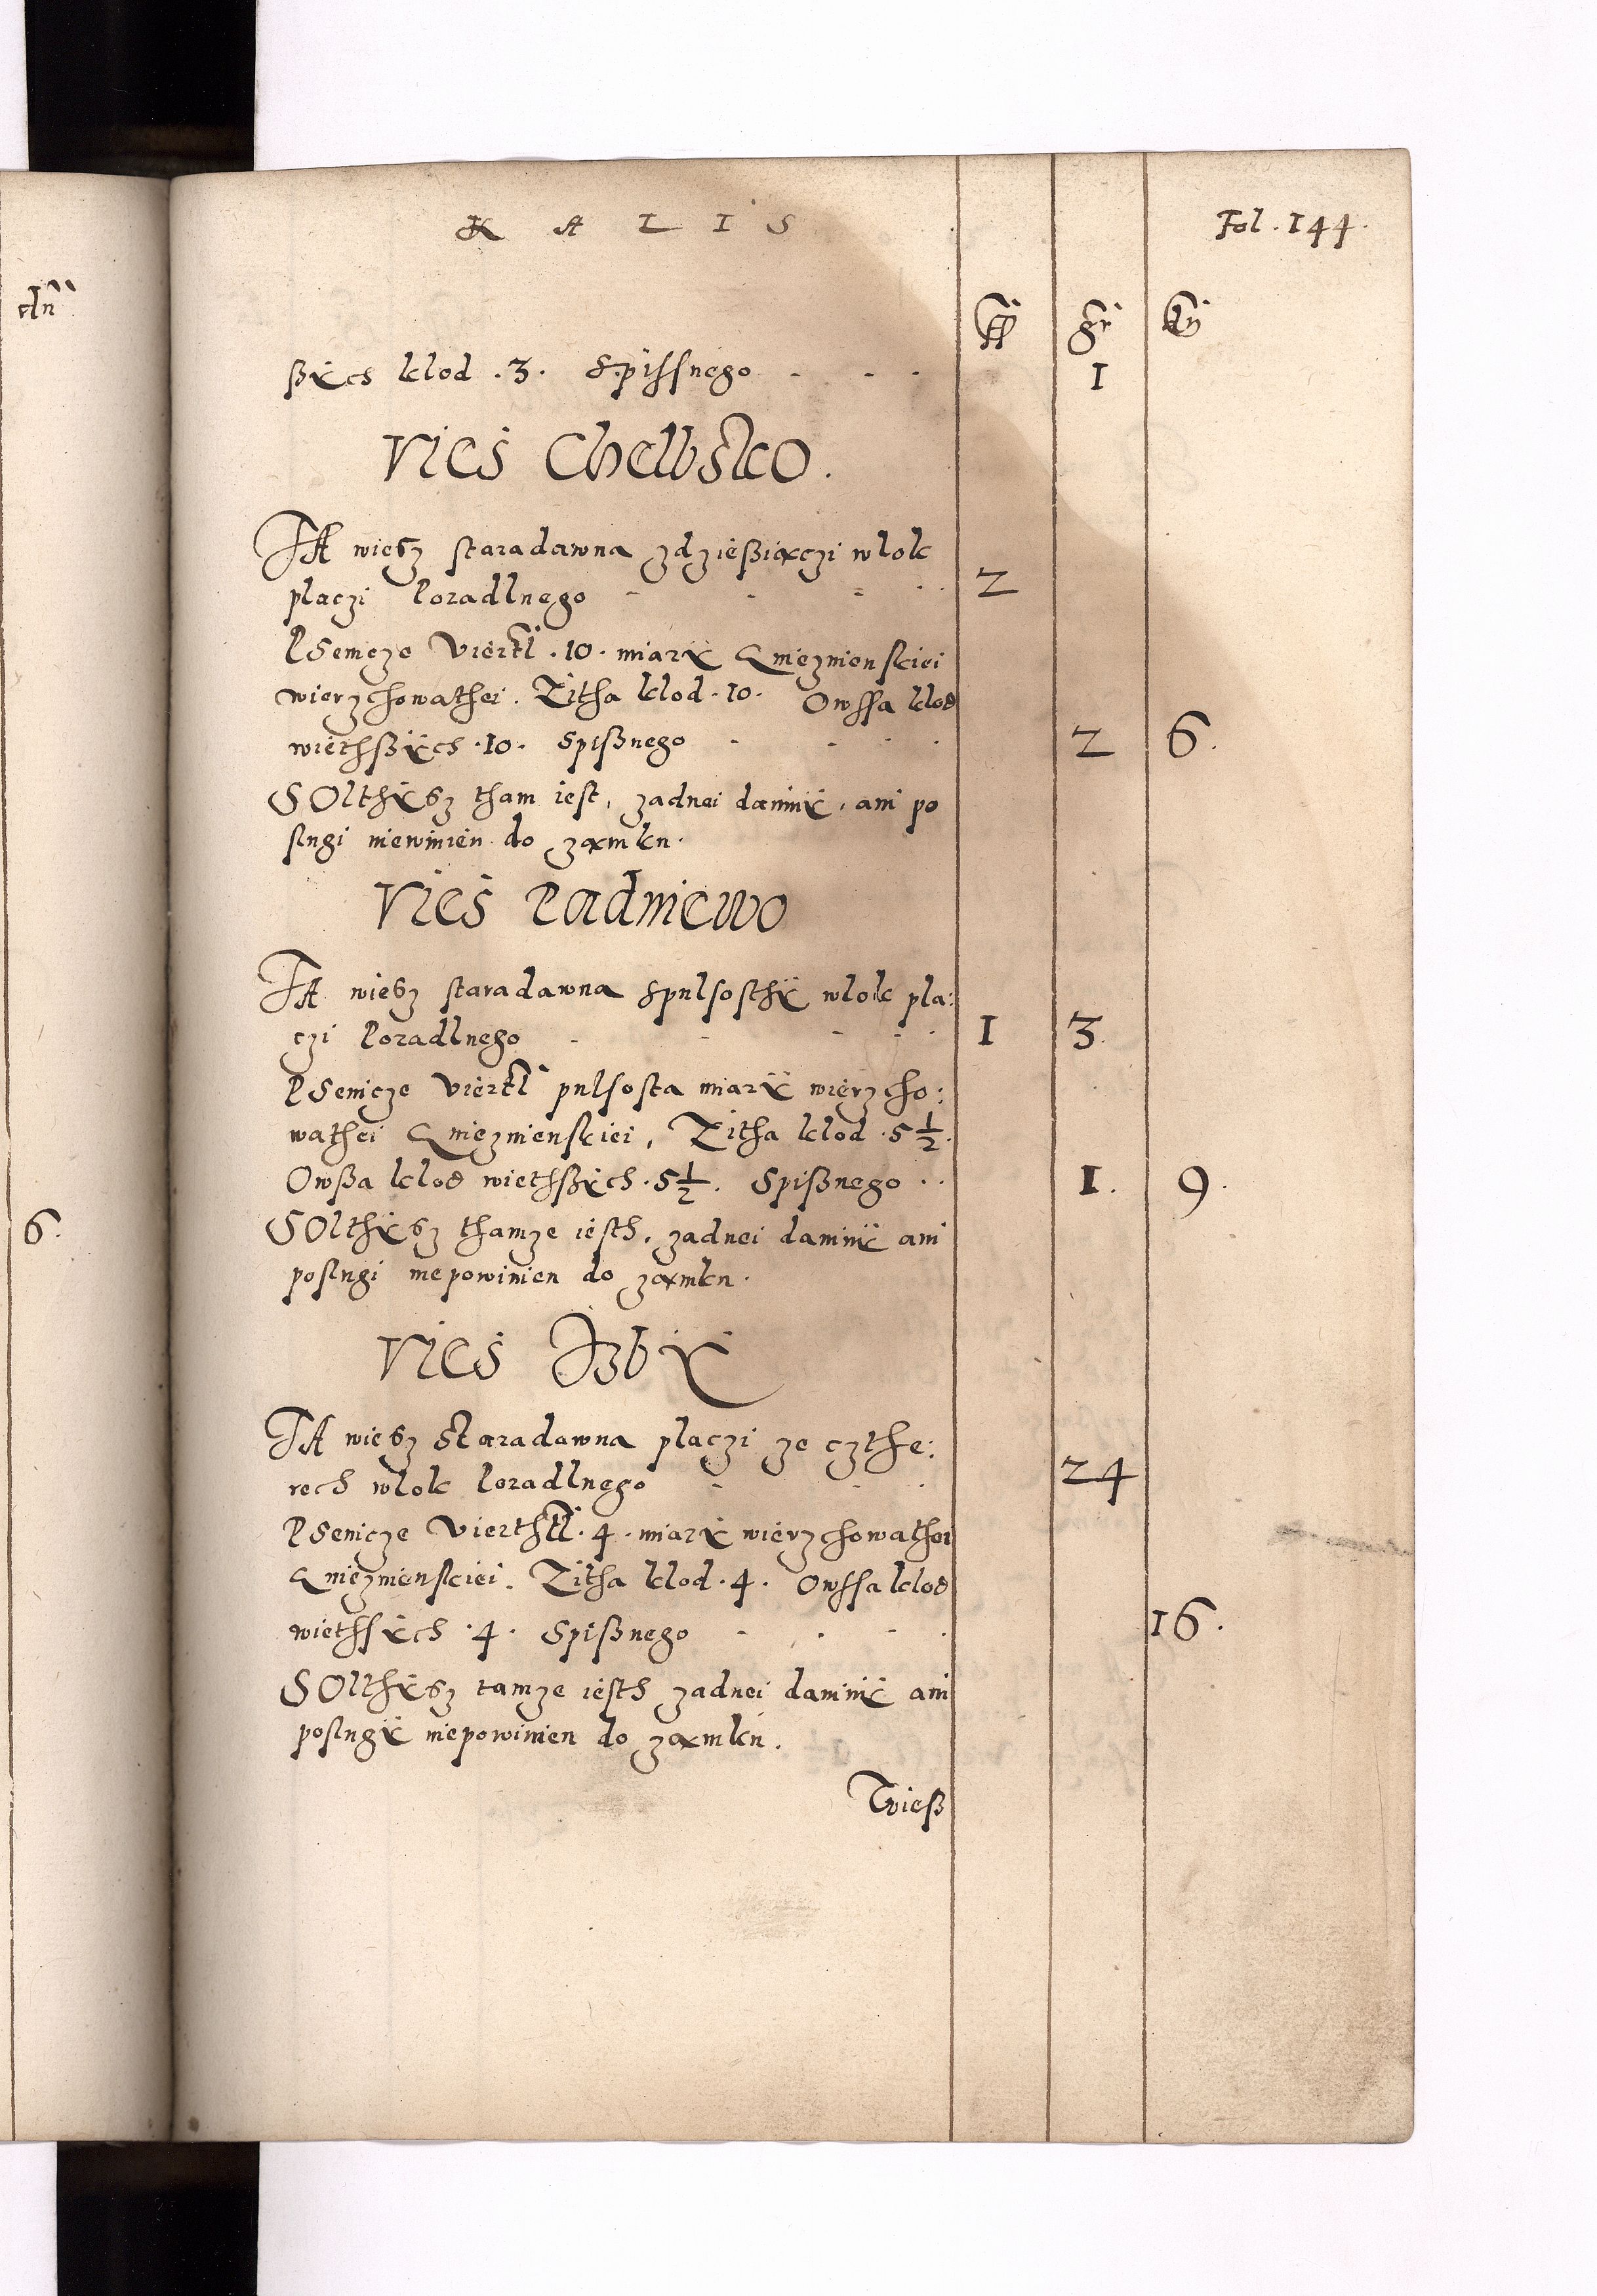 K A L I S
Fol. 144.
ff gr dn
ßÿch klod .3. Spissnego . . . . 1
VIEś Chelbsko.
TA wiesz staradawna zdziesiączi wlok
placzi Poradlnego 2
PSenicze Viertl .10. miarÿ Gnieznienskiei
wierzchowathei. Zitha klod .10. Owssa klod
wiethßÿch .10. Spißnego . . . . 2 6.
SOlthÿsz tham iest, zadnei daninÿ, ani po
slugi niewinien do zamku.
VIEś Padniewo
TA wiesz staradawna spulsosthÿ wlok pla:
czi Poradlnego 1 3
PSenicze Viertl pulsosta miarÿ wierzcho:
wathei Gnieznienskiei, Zitha klod .5 1/2.
Owßa klod wiethßÿch .5 1/2. Spißnego . . 1. 9.
SOlthÿsz thamze iesth, zadnei daninÿ ani
poslugi niepowinien do zamku.
VIEś Izbÿ
TA wiesz Staradawna placzi ze czthe:
rech wlok Poradlnego 24
PSenicze Vierthl .4. miarÿ wierzchowathei
Gnieznienskiei. Zitha klod .4. Owssa klod
wiethsÿch .4. Spißnego . . . . 16.
SOlthÿsz tamze iesth zadnei daninÿ ani
poslugÿ niepowinien do zamku.
Wieß
dn
6.